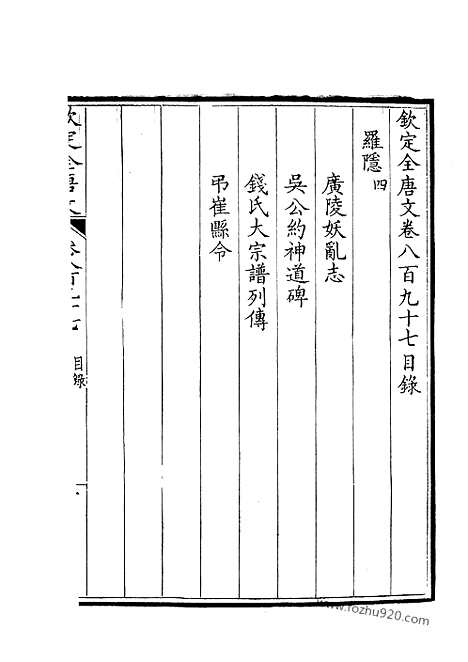 欽定全唐文卷八百九十七目錄
羅隱四
廣陵妖亂志
吳公約神道碑
錢氏大宗譜列傳
弔崔縣令
欽定全唐文
卷八百九十七
目錄
www.fozhu920.com